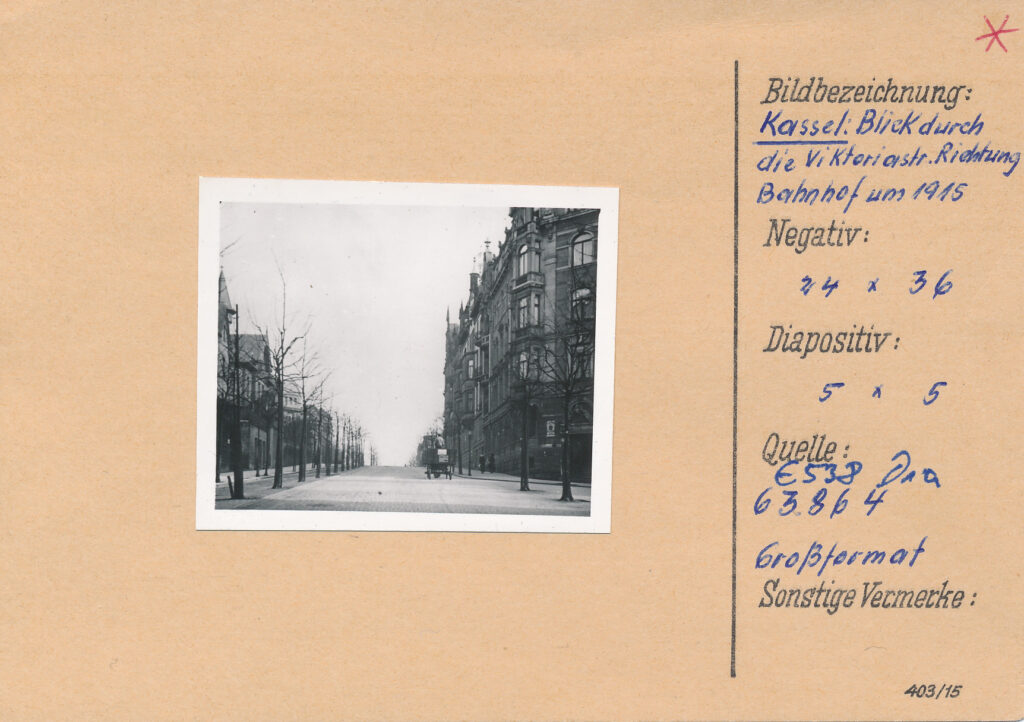 Bildbezeichnung:
Kassel: Blick durch
die Viktoriastr. Richtung
Bahnhof um 1915
Negativ:
24 x 36
Diapositiv:
5 x 5
Quelle:
E538 Dia
63.864
Großformat
Sonstige Vermerke:
403/15